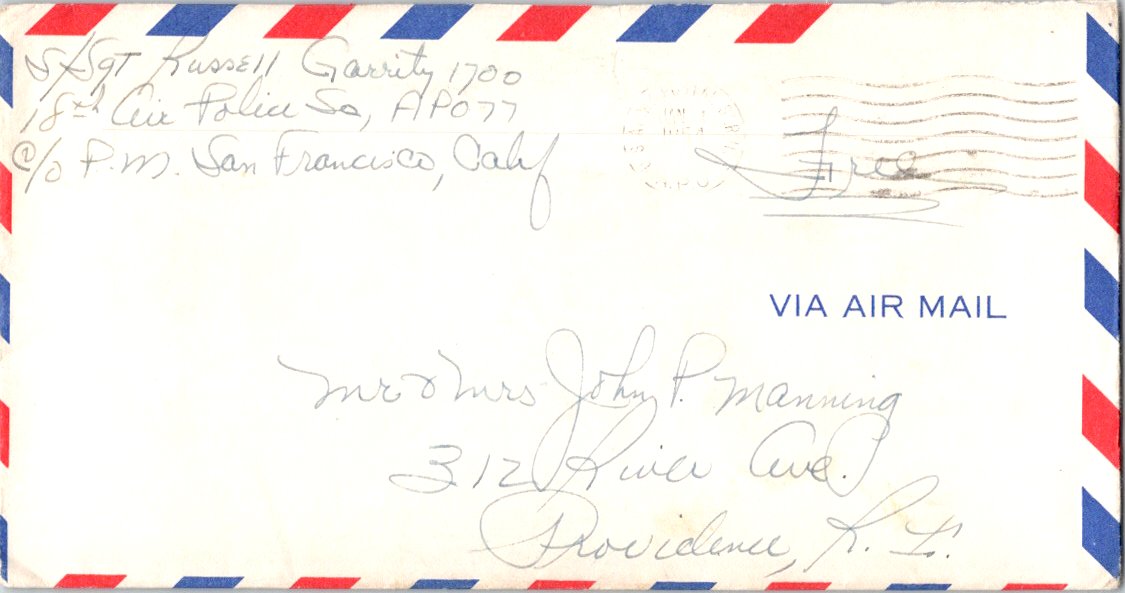 S/Sgt Russell Garrity 1700
18th Air Police Sq, APO 77
c/o P.M. San Francisco, Calif
Free
VIA AIR MAIL
Mr & Mrs John P. Manning
312 River Ave.
Providence, R. I.